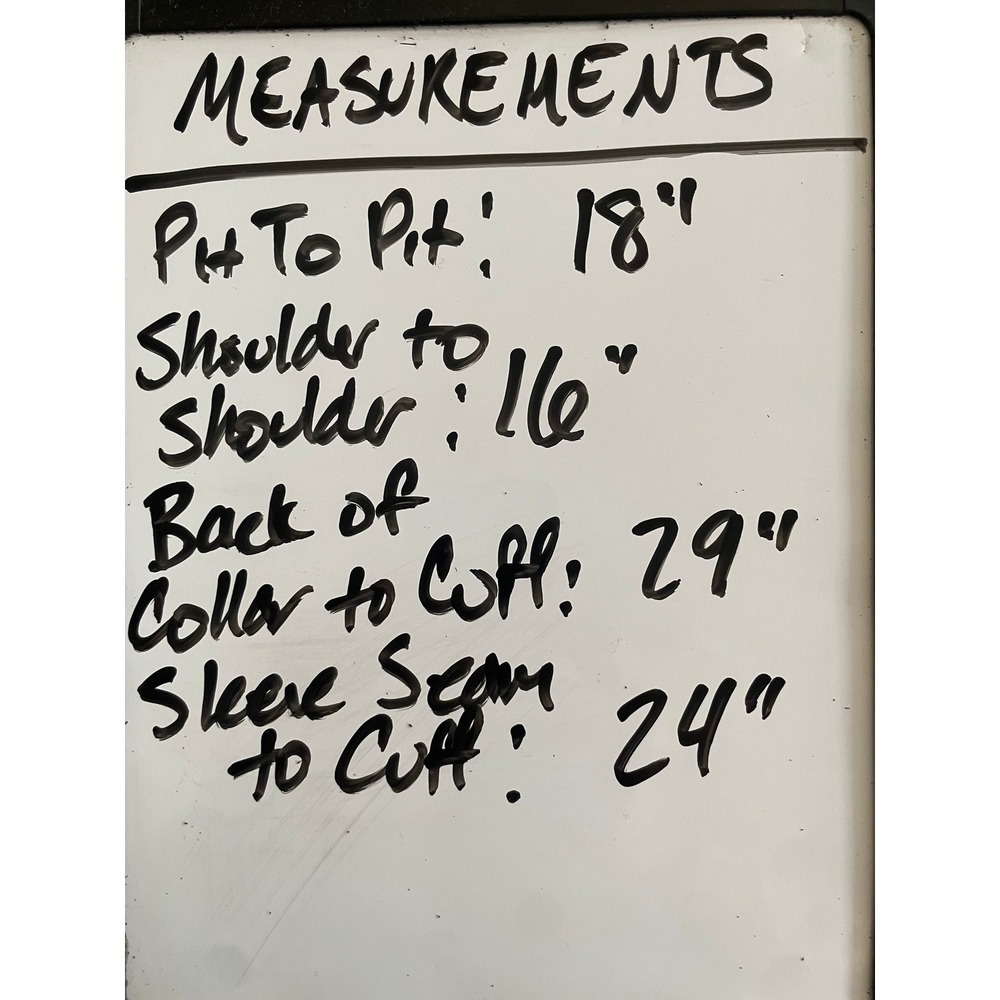 MEASUREMENTS
Pit To Pit: 18"
Shoulder to
Shoulder: 16"
Back of
Collar to Cuff: 29"
Sleeve Seam
to Cuff: 24"